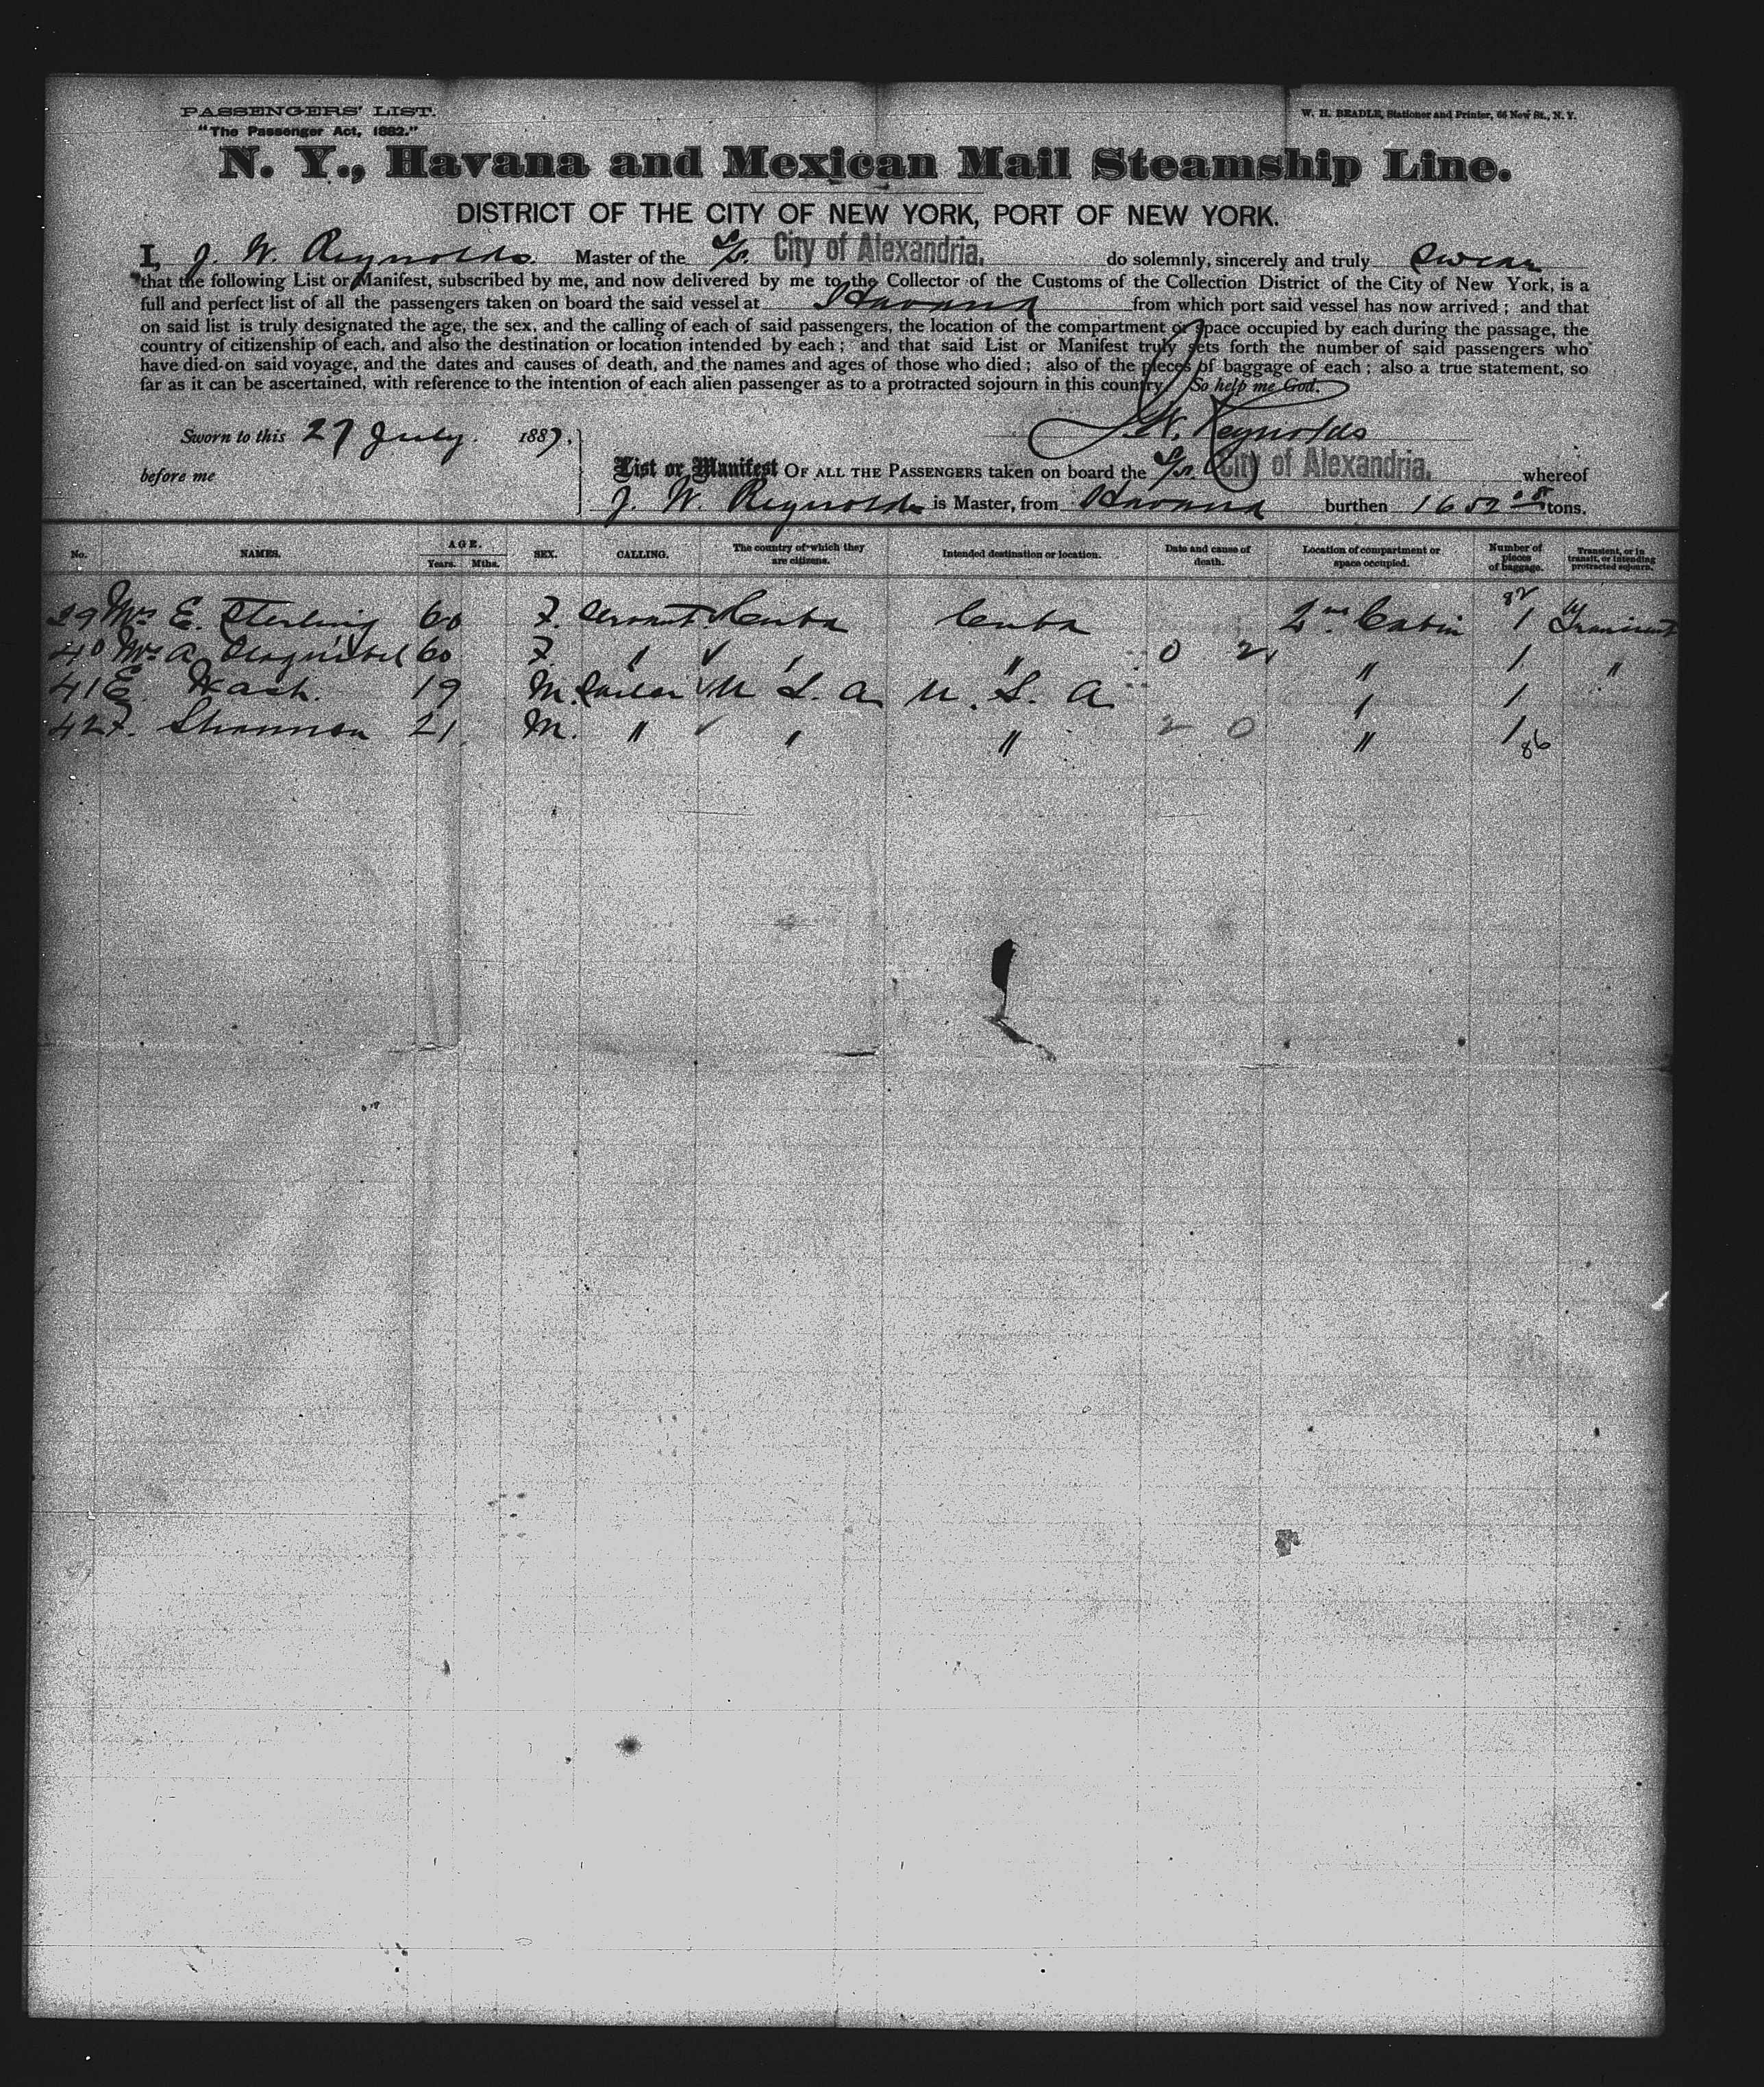 PASSENGERS' LIST.
"The Passenger Act, 1882."
W. H. BEADLE, Stationer and Printer, 66 New St., N. Y.
N. Y., Havana and Mexican Mail Steamship Line.
DISTRICT OF THE CITY OF NEW YORK, PORT OF NEW YORK.
I, J. W. Reynolds. Master of the S/S. City of Alexandria, do solemnly, sincerely and truly Swear
that the following List or Manifest, subscribed by me, and now delivered by me to the Collector of the Customs of the Collection District of the City of New York, is a
full and perfect list of all the passengers taken on board the said vessel at Havana from which port said vessel has now arrived; and that
on said list is truly designated the age, the sex, and the calling of each of said passengers, the location of the compartment or space occupied by each during the passage, the
country of citizenship of each, and also the destination or location intended by each; and that said List or Manifest truly sets forth the number of said passengers who
have died on said voyage, and the dates and causes of death, and the names and ages of those who died; also of the pieces of baggage of each; also a true statement, so
far as it can be ascertained, with reference to the intention of each alien passenger as to a protracted sojourn in this country. So help me God.
Sworn to this 27 July. 1887.
J. W. Reynolds
before me
List or Manifest OF ALL THE PASSENGERS taken on board the S/S. City of Alexandria, whereof
J. W. Reynolds is Master, from Havana burthen tons.
No. NAMES. AGE. Years. Mths. SEX. CALLING. The country of which they are citizens. Intended destination or location. Date and cause of death. Location of compartment or space occupied. Number of pieces of baggage. Transient, or in transit, or intending protracted sojourn.
82
39 Mrs E. Sterling 60 F. Servant Cuba Cuba 2nd Cabin 1 Transient
40 Mrs A. 60 F. " " " 0 2 " 1 "
41 E. Nash. 19 M. Sailor U S. A U. S. A " 1
42 F. Shannon 21 M. " " " 2 0 " 1
86